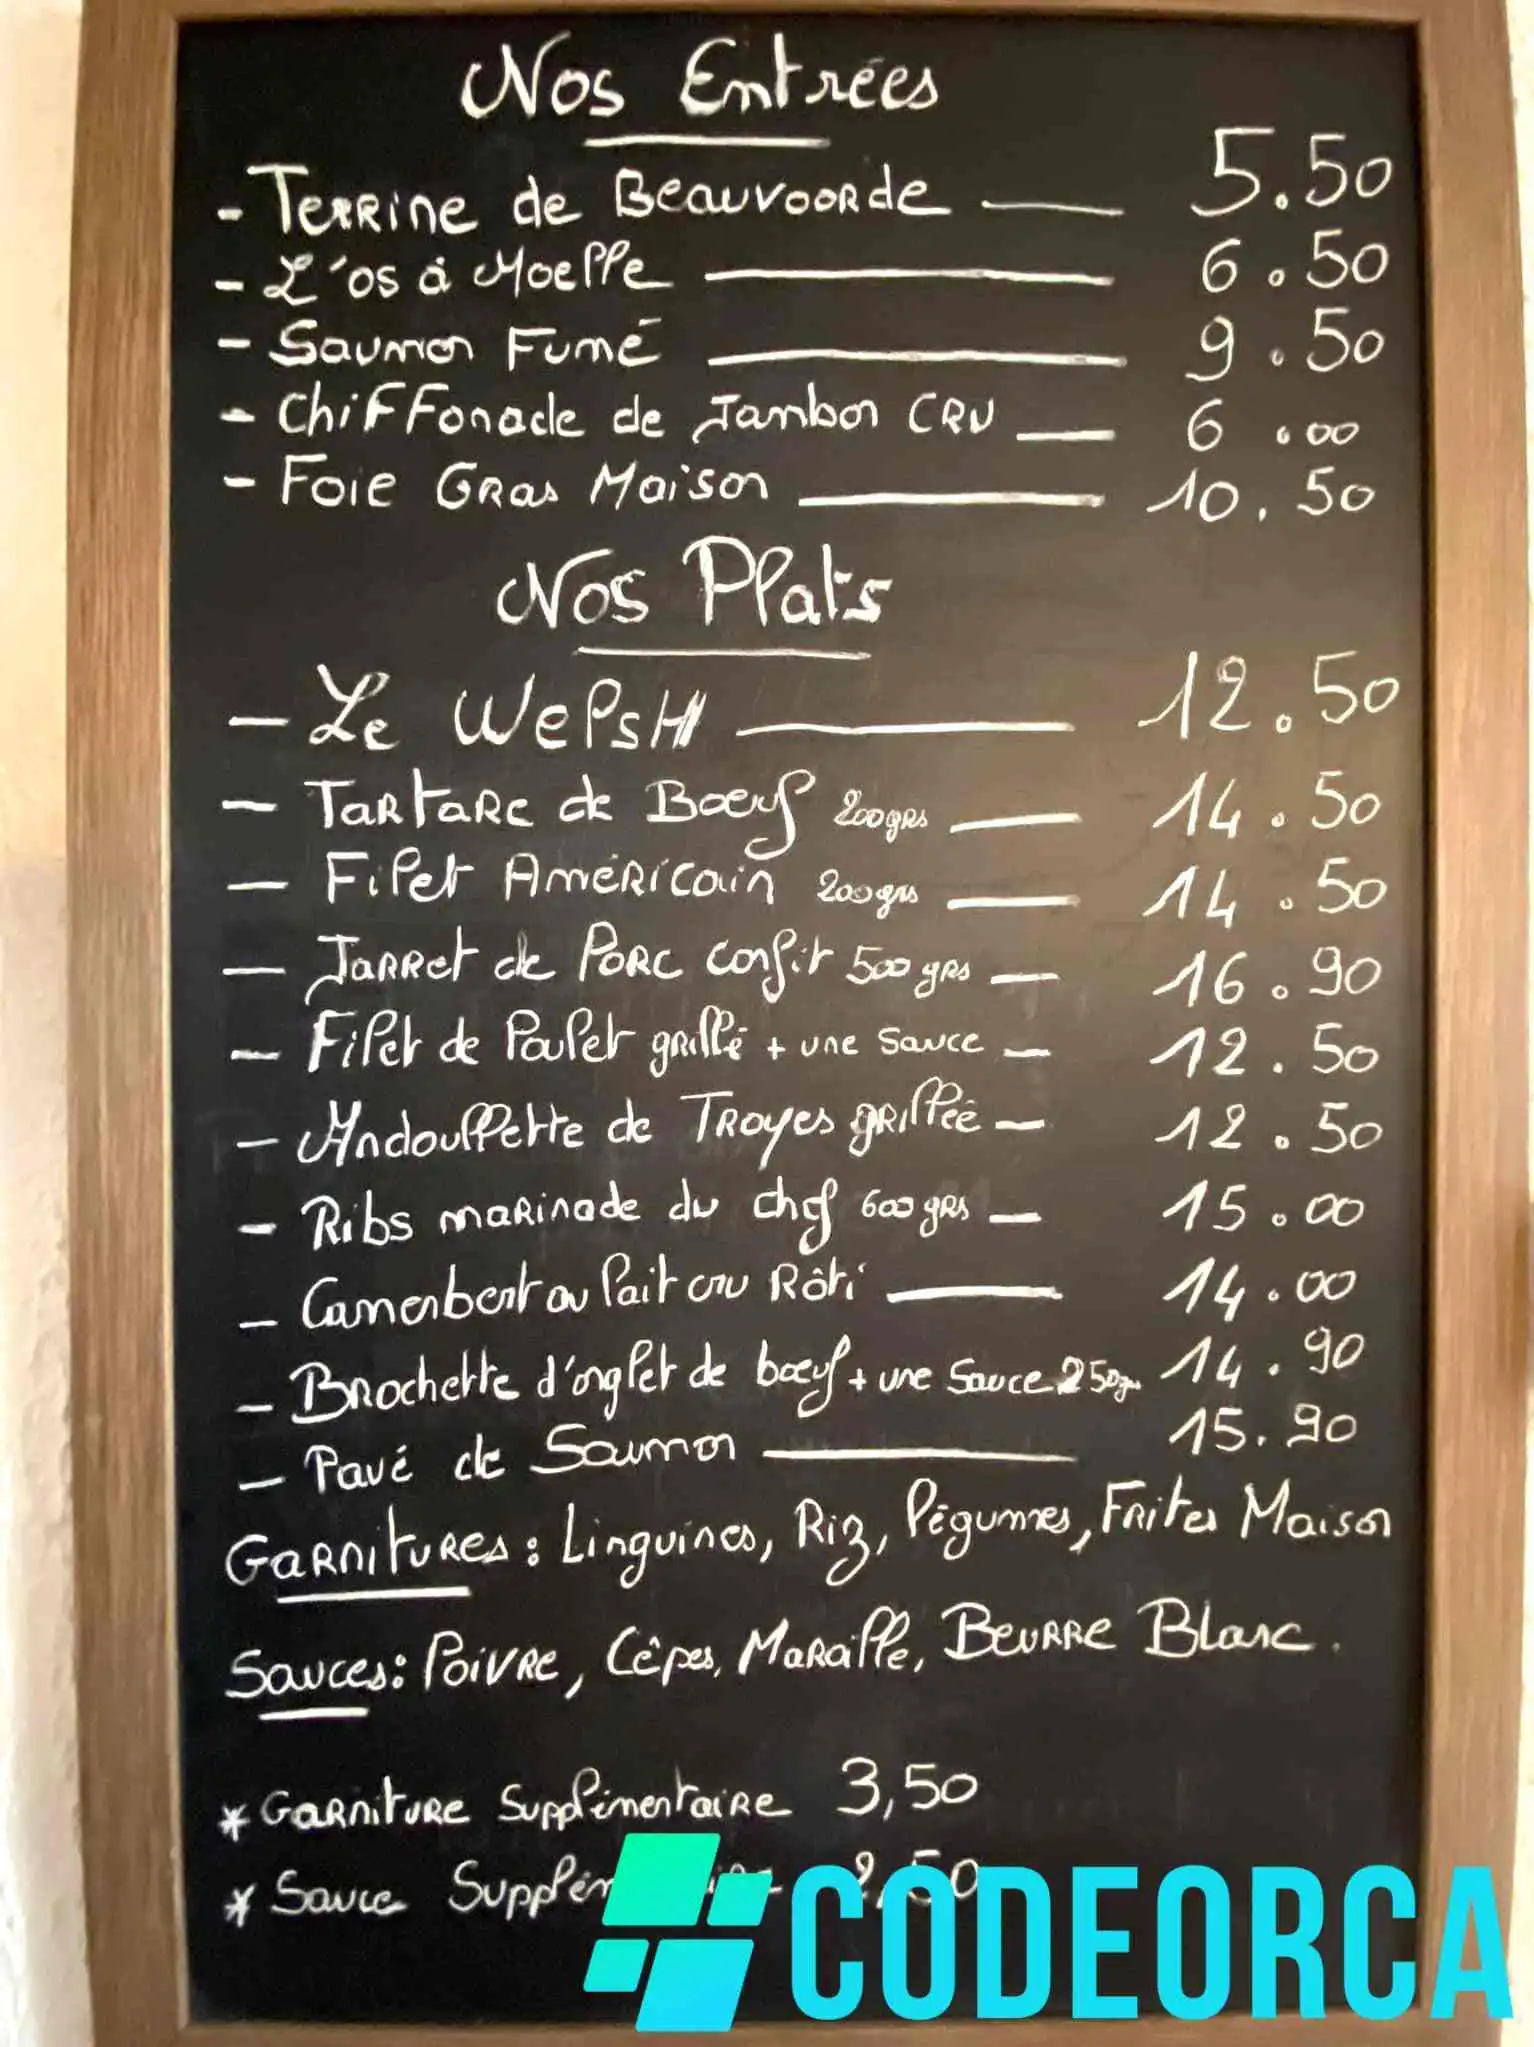 Nos Entrées
- Terrine de Beauvoorde 5.50
- L'os à Moelle 6.50
- Saumon Fumé 9.50
- Chiffonade de Jambon CRU 6.00
- Foie Gras Maison 10.50
Nos Plats
- Le WelsH 12.50
- Tartare de Bœuf 200grs 14.50
- Filet Américain 200grs 14.50
- Jarret de Porc confit 500 grs 16.90
- Filet de Poulet grillé + une sauce 12.50
- Andouillette de Troyes grillée 12.50
- Ribs marinade du chef 600 grs 15.00
- Camembert au lait cru Rôti 14.00
- Brochette d'onglet de bœuf + une Sauce 250gr 14.90
- Pavé de Saumon 15.90
Garnitures : Linguines, Riz, légumes, Frites Maison
Sauces : Poivre, Cêpes, Maroille, Beurre Blanc.
* Garniture Supplémentaire 3,50
* Sauce 2,50
CODEORCA